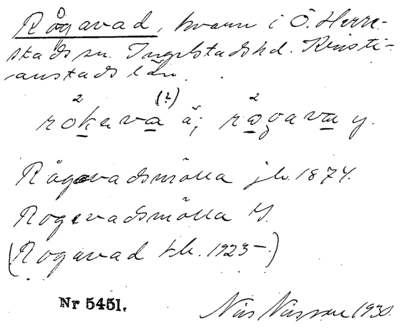 Rågavad, kvarn i Ö. Herre-
stads sn. Ingelstads hd. Kristi-
anstads län.
2 (?) 2
rokava ä; rågava y.
Rågavadsmölla jb. 1874.
Rogevadsmölla
(Rogavad tk. 1923-)
Nr 5451.
Nils 1930.